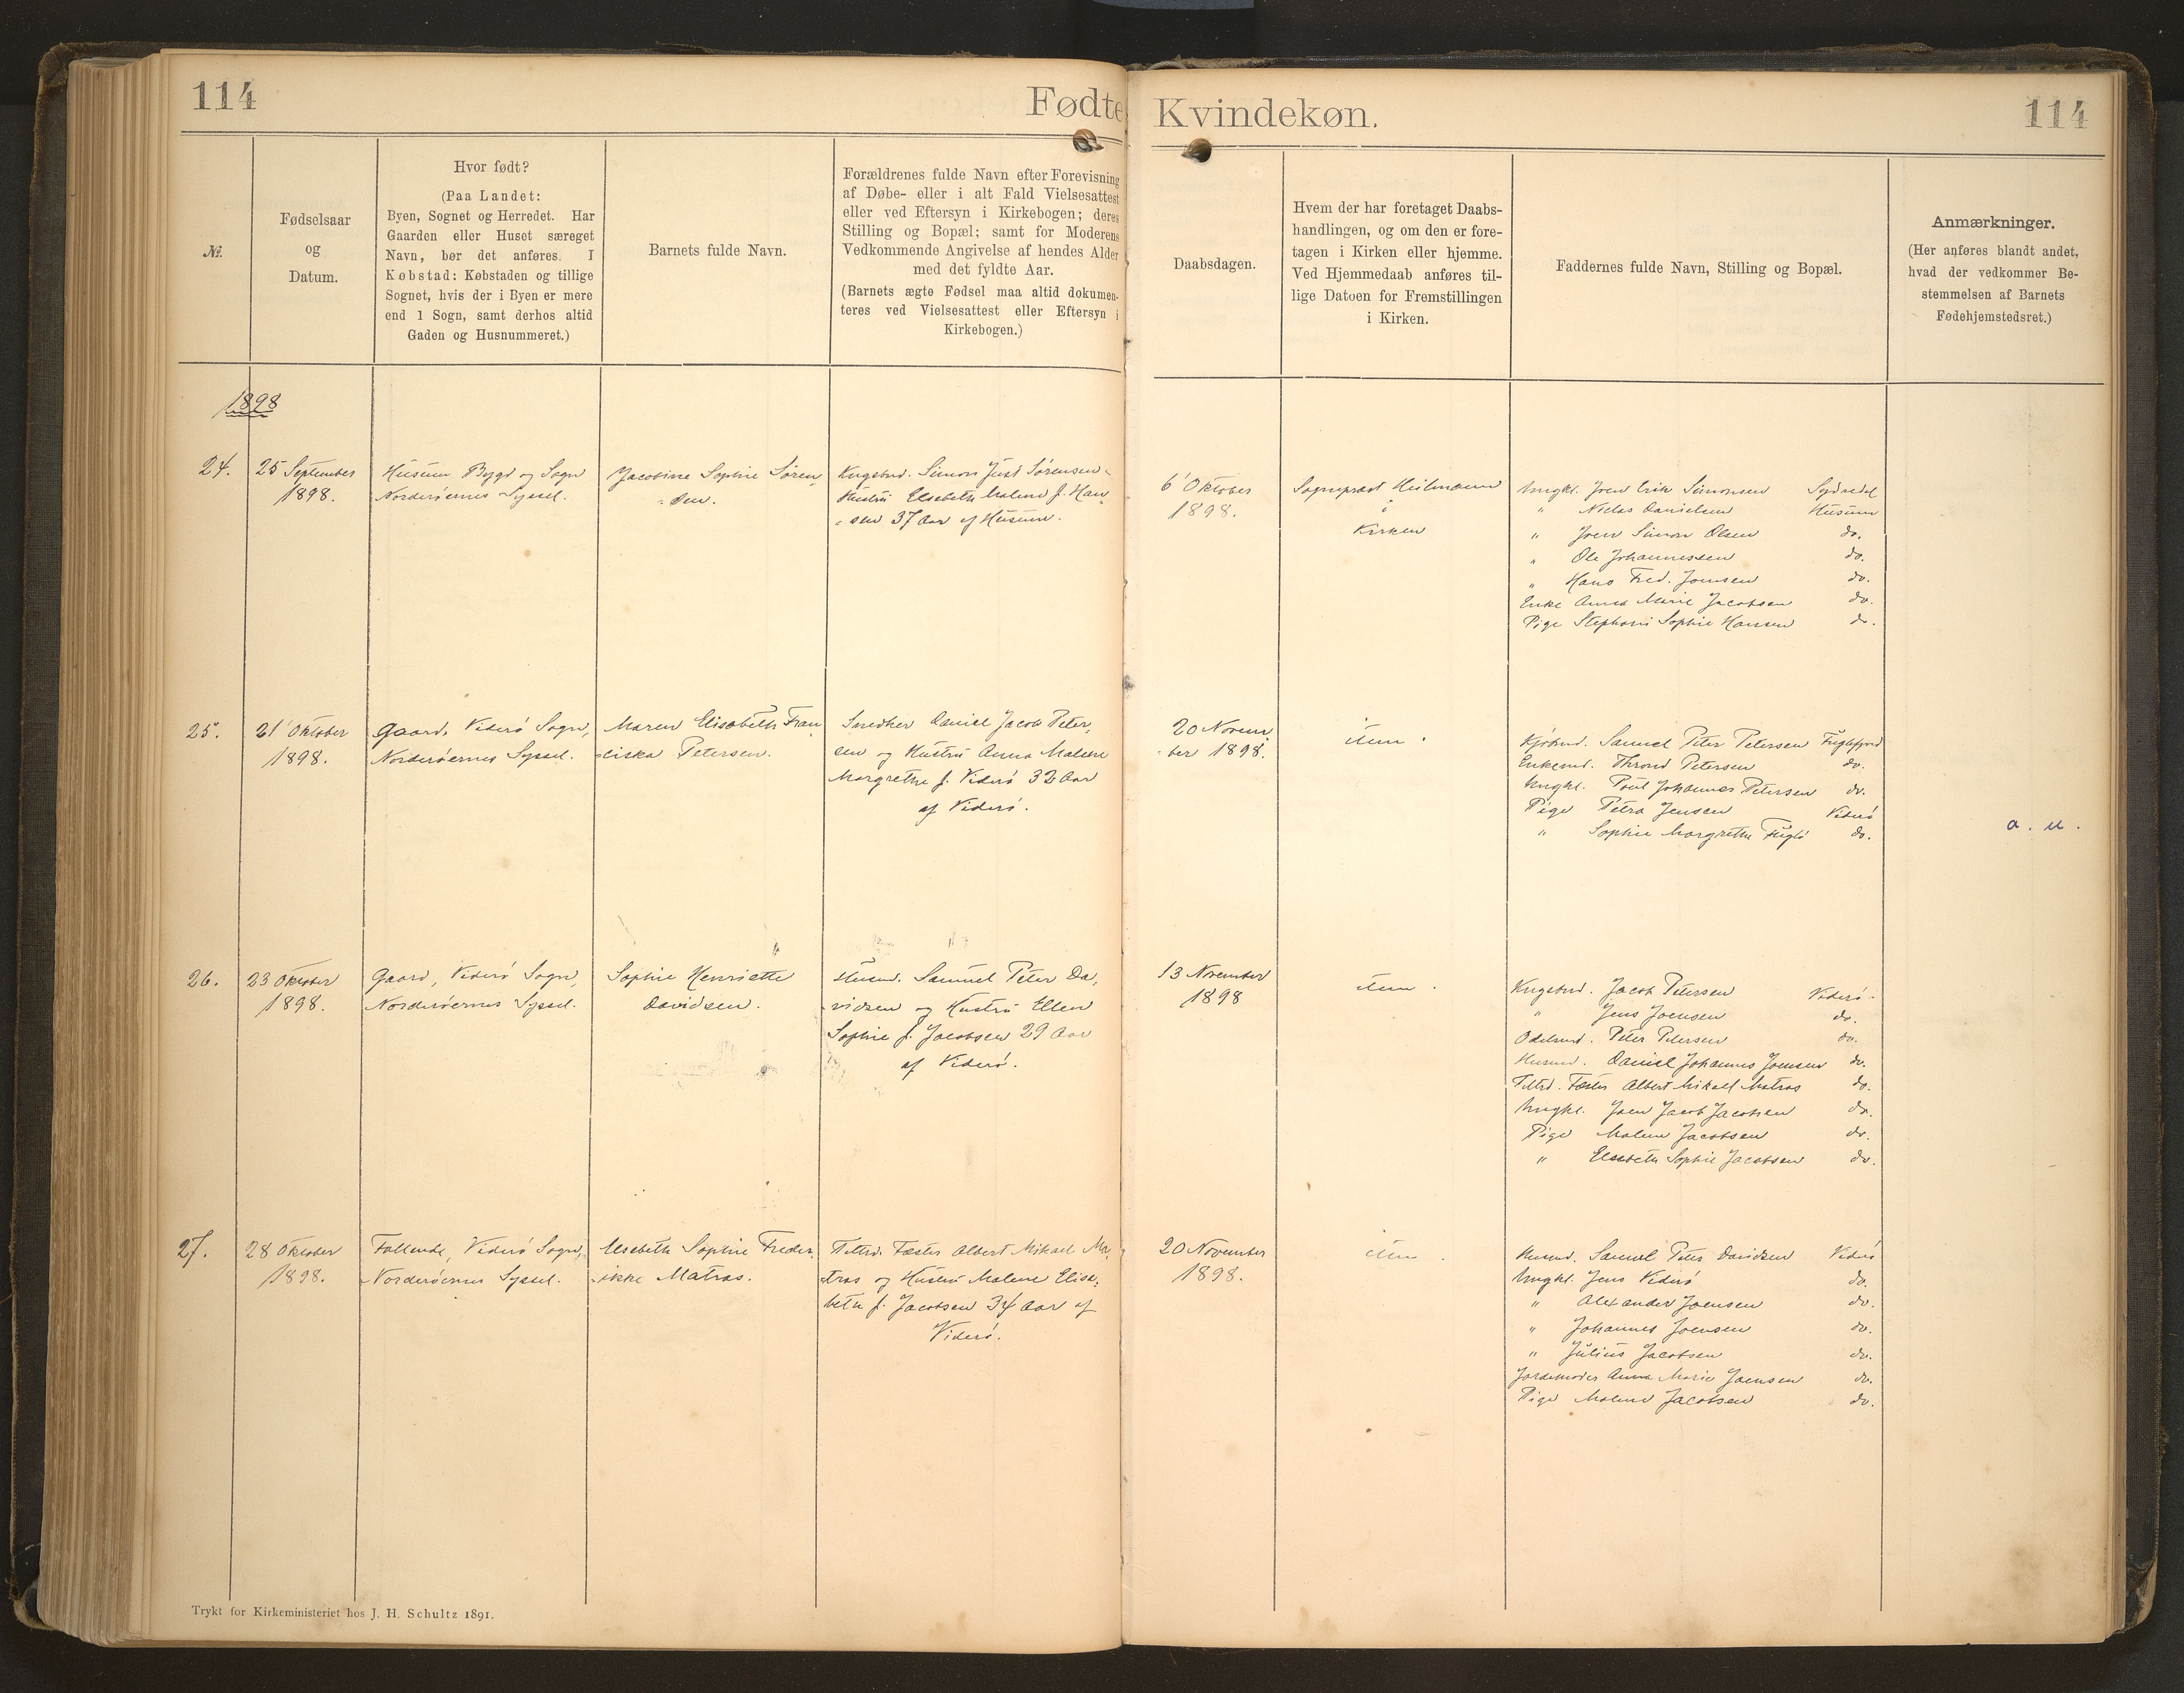 114
Fødte
Kvindekøn.
114
№.
Fødselsaar
og
Datum.
Hvor født?
(Paa Landet:
Byen, Sognet og Herredet. Har
Gaarden eller Huset særeget
Navn, bør det anføres. I
Købstad: Købstaden og tillige
Sognet, hvis der i Byen er mere
end 1 Sogn, samt derhos altid
Gaden og Husnummeret.)
Barnets fulde Navn.
Forældrenes fulde Navn efter Forevisning
af Døbe- eller i alt Fald Vielsesattest
eller ved Eftersyn i Kirkebogen; deres
Stilling og Bopæl; samt for Moderens
Vedkommende Angivelse af hendes Alder
med det fyldte Aar.
(Barnets ægte Fødsel maa altid dokumen-
teres ved Vielsesattest eller Eftersyn i
Kirkebogen.)
Daabsdagen.
Hvem der har foretaget Daabs-
handlingen, og om den er fore-
tagen i Kirken eller hjemme.
Ved Hjemmedaab anføres til-
lige Datoen for Fremstillingen
i Kirken.
Faddernes fulde Navn, Stilling og Bopæl.
Anmærkninger.
(Her anføres blandt andet,
hvad der vedkommer Be-
stemmelsen af Barnets
Fødehjemstedsret.)
1898
24.
25 September
1898.
Husum Bygd og Sogn
Norderøernes Syssel.
Jacobine Sophie Søren
sen.
Kngsbnd. Simon Just Sørensen
Hustru Elsebeth Malene f. Han
sen 37 Aar af Husum.
6 Oktober
1898.
Sognepræst Heilmann
i
Kirken
Ungkl. Joen Erik Simonsen Sydredal
" Niclas Danielsen Husum
" Joen Simon Olsen do.
" Ole Johannessen do.
" Hans Fred. Joensen do.
Enke Anna Marie Jacobsen do.
Pige Stephani Sophie Hansen do.
25.
21 Oktober
1898.
Gaard, Viderø Sogn,
Norderøernes Syssel.
Maren Elisabeth Fran
ciska Petersen.
Snedker Daniel Jacob Peter,
sen og Hustru Anna Malene
Margrethe f. Viderø 32 Aar
af Viderø.
20 Novem
ber 1898.
item.
Kjøbmd. Samuel Peter Petersen Fuglefjord
Enkemd. Thrond Petersen do.
Ungkl. Poul Johannes Petersen do.
Pige Petra Jensen Viderø
" Sophie Margrethe Fuglø do.
a. u.
26.
23 Oktober
1898.
Gaard, Viderø Sogn,
Norderøernes Syssel.
Sophie Henriette
Davidsen.
Husmd. Samuel Peter Da,
vidsen og Hustru Ellen
Sophie f. Jacobsen 29 Aar
af Viderø.
13 November
1898
item.
Kngsbnd. Jacob Petersen Viderø.
" Jens Joensen do.
Odelsmd. Peter Petersen do.
Husmd. Daniel Johannes Joensen do.
Tiltrd. Fæster Albert Mikael Matras do.
Ungkl. Joen Jacob Jacobsen do.
Pige Malene Jacobsen do.
" Elsebeth Sophie Jacobsen do.
27.
28 Oktober
1898.
Fallende, Viderø Sogn,
Norderøernes Syssel.
Elsebeth Sophie Freder
ikke Matras.
Tiltrd. Fæster Albert Mikael Ma
tras og Hustru Malene Elisa,
beth f. Jacobsen 34 Aar af
Viderø.
20 November
1898.
item.
Husmd. Samuel Peter Davidsen Viderø
Ungkl. Jens Viderø do.
" Alexander Joensen do.
" Johannes Joensen do.
" Julius Jacobsen do.
Jordemoder Anna Marie Joensen do.
Pige Malene Jacobsen do.
Trykt for Kirkeministeriet hos J. H. Schultz 1891.